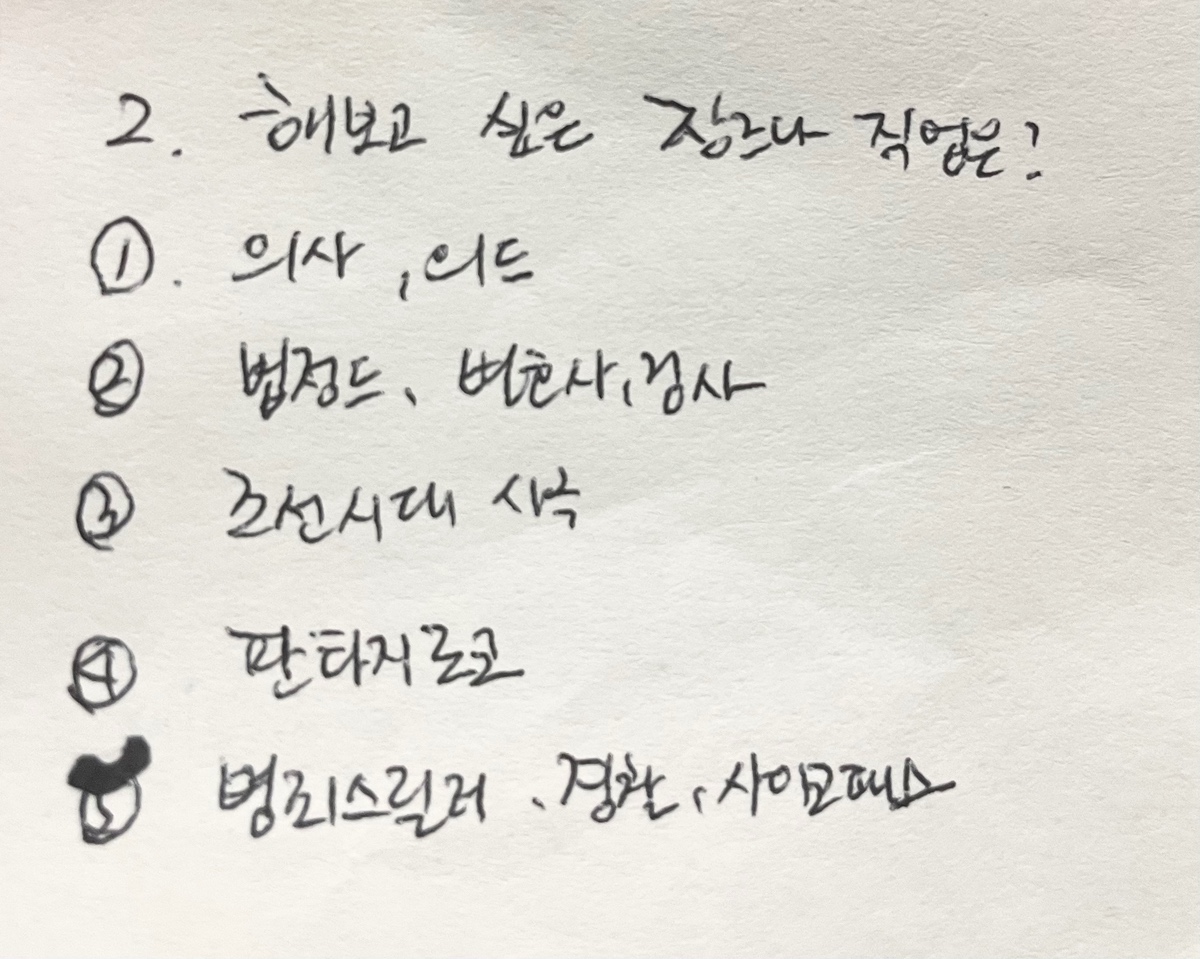 2. 해보고 싶은 장르나 직업은?
①. 의사, 의드
② 법정드, 변호사, 검사
③ 조선시대 사극
④ 판타지 로코
⑤ 범죄스릴러, 경찰, 사이코패스